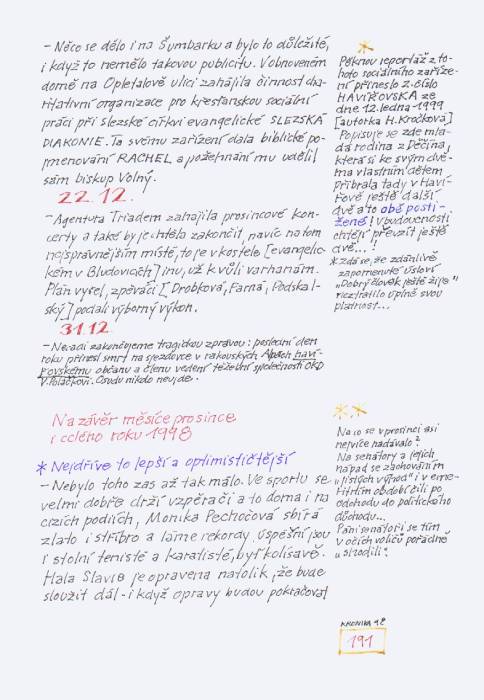 - Něco se dělo i na Šumbarku a bylo to důležité,
i když to nemělo takovou publicitu. V obnoveném
domě na Opletalově ulici zahájila činnost cha-
ritativní organizace pro křesťanskou sociální
práci při slezské církvi evangelické SLEZSKÁ
DIAKONIE. Ta svému zařízení dala biblické po-
jmenování RACHEL a požehnání mu udělil
sám biskup Volný.
22.12.
- Agentura Triadem zahájila prosincové kon-
certy a také by je chtěla zakončit, navíc na tom
nejsprávnějším místě, to je v kostele [evangelic-
kém v Bludovicích] inu, už kvůli varhanám.
Plán vyšel, zpěváci [Drobková, Farná, Podskal-
ský] podali výborný výkon.
31.12.
- Neradi zakončujeme tragickou zprávou: poslední den
roku přinesl smrt na sjezdovce v rakouských Alpách haví-
řovskému občanu a členu vedení těžební společnosti OKD
V. Poláčkovi. Osudu nikdo neujde.
Na závěr měsíce prosince
i celého roku 1998
* Nejdříve to lepší a optimističtější
- Nebylo toho zas až tak málo. Ve sportu se
velmi dobře drží vzpěrači a to doma i na
cizích podiích, Monika Pechočová sbírá
zlato i stříbro a láme rekordy, úspěšní jsou
i stolní tenisté a karatisté, byť kolísavě.
Hala Slavie je opravena natolik, že bude
sloužit dál - i když opravy budou pokračovat
*
Pěknou reportáž z to-
hoto sociálního zaříze-
ní přineslo 2. číslo
HAVÍŘOVSKA ze
dne 12. ledna 1999
[autorka H. Kročková]
Popisuje se zde mla-
dá rodina z Děčína,
která si ke svým dvě-
ma vlastním dětem
přibrala tady v Haví-
řově ještě další
dvě a to obě posti-
žené! V budoucnosti
chtějí převzít ještě
dvě...!
* Zdá se, že zdánlivě
zapomenuté úsloví
„Dobrý člověk ještě žije"
neztratilo úplně svou
platnost...
* *
Na co se v prosinci asi
nejvíce nadávalo?
Na senátory a jejich
nápad se zachováním
„jistých výhod" i v eme-
ritním období čili po
odchodu do politického
důchodu...
Páni senátoři se tím
v očích voličů pořádně
„shodili".
KRONIKA 98
191